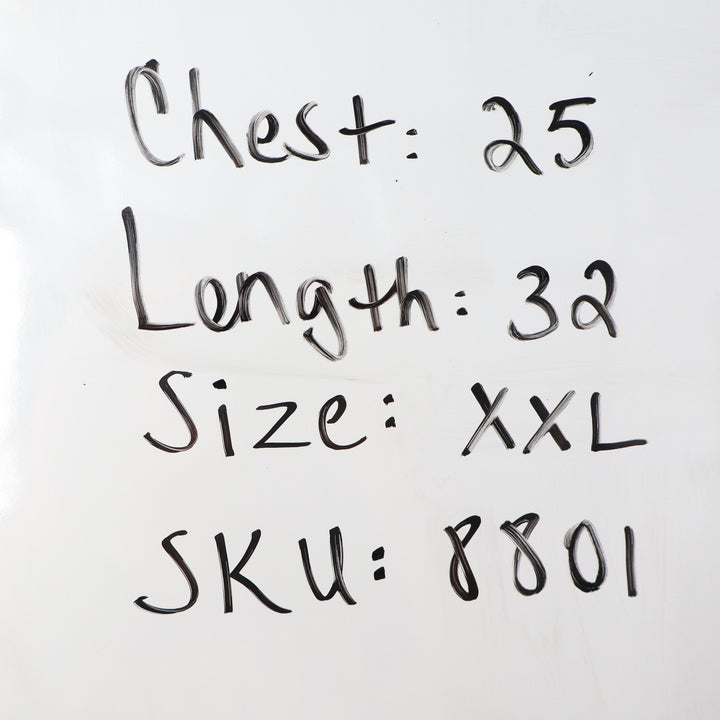 Chest: 25
Length: 32
Size: XXL
SKU: 8801